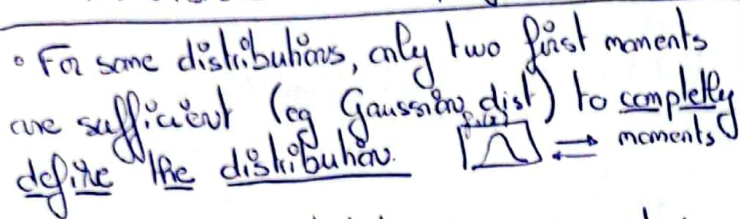 • For some distributions, only two first moments
are sufficient (eg Gaussian dist) to completly
define the distribution. ⇌ moments